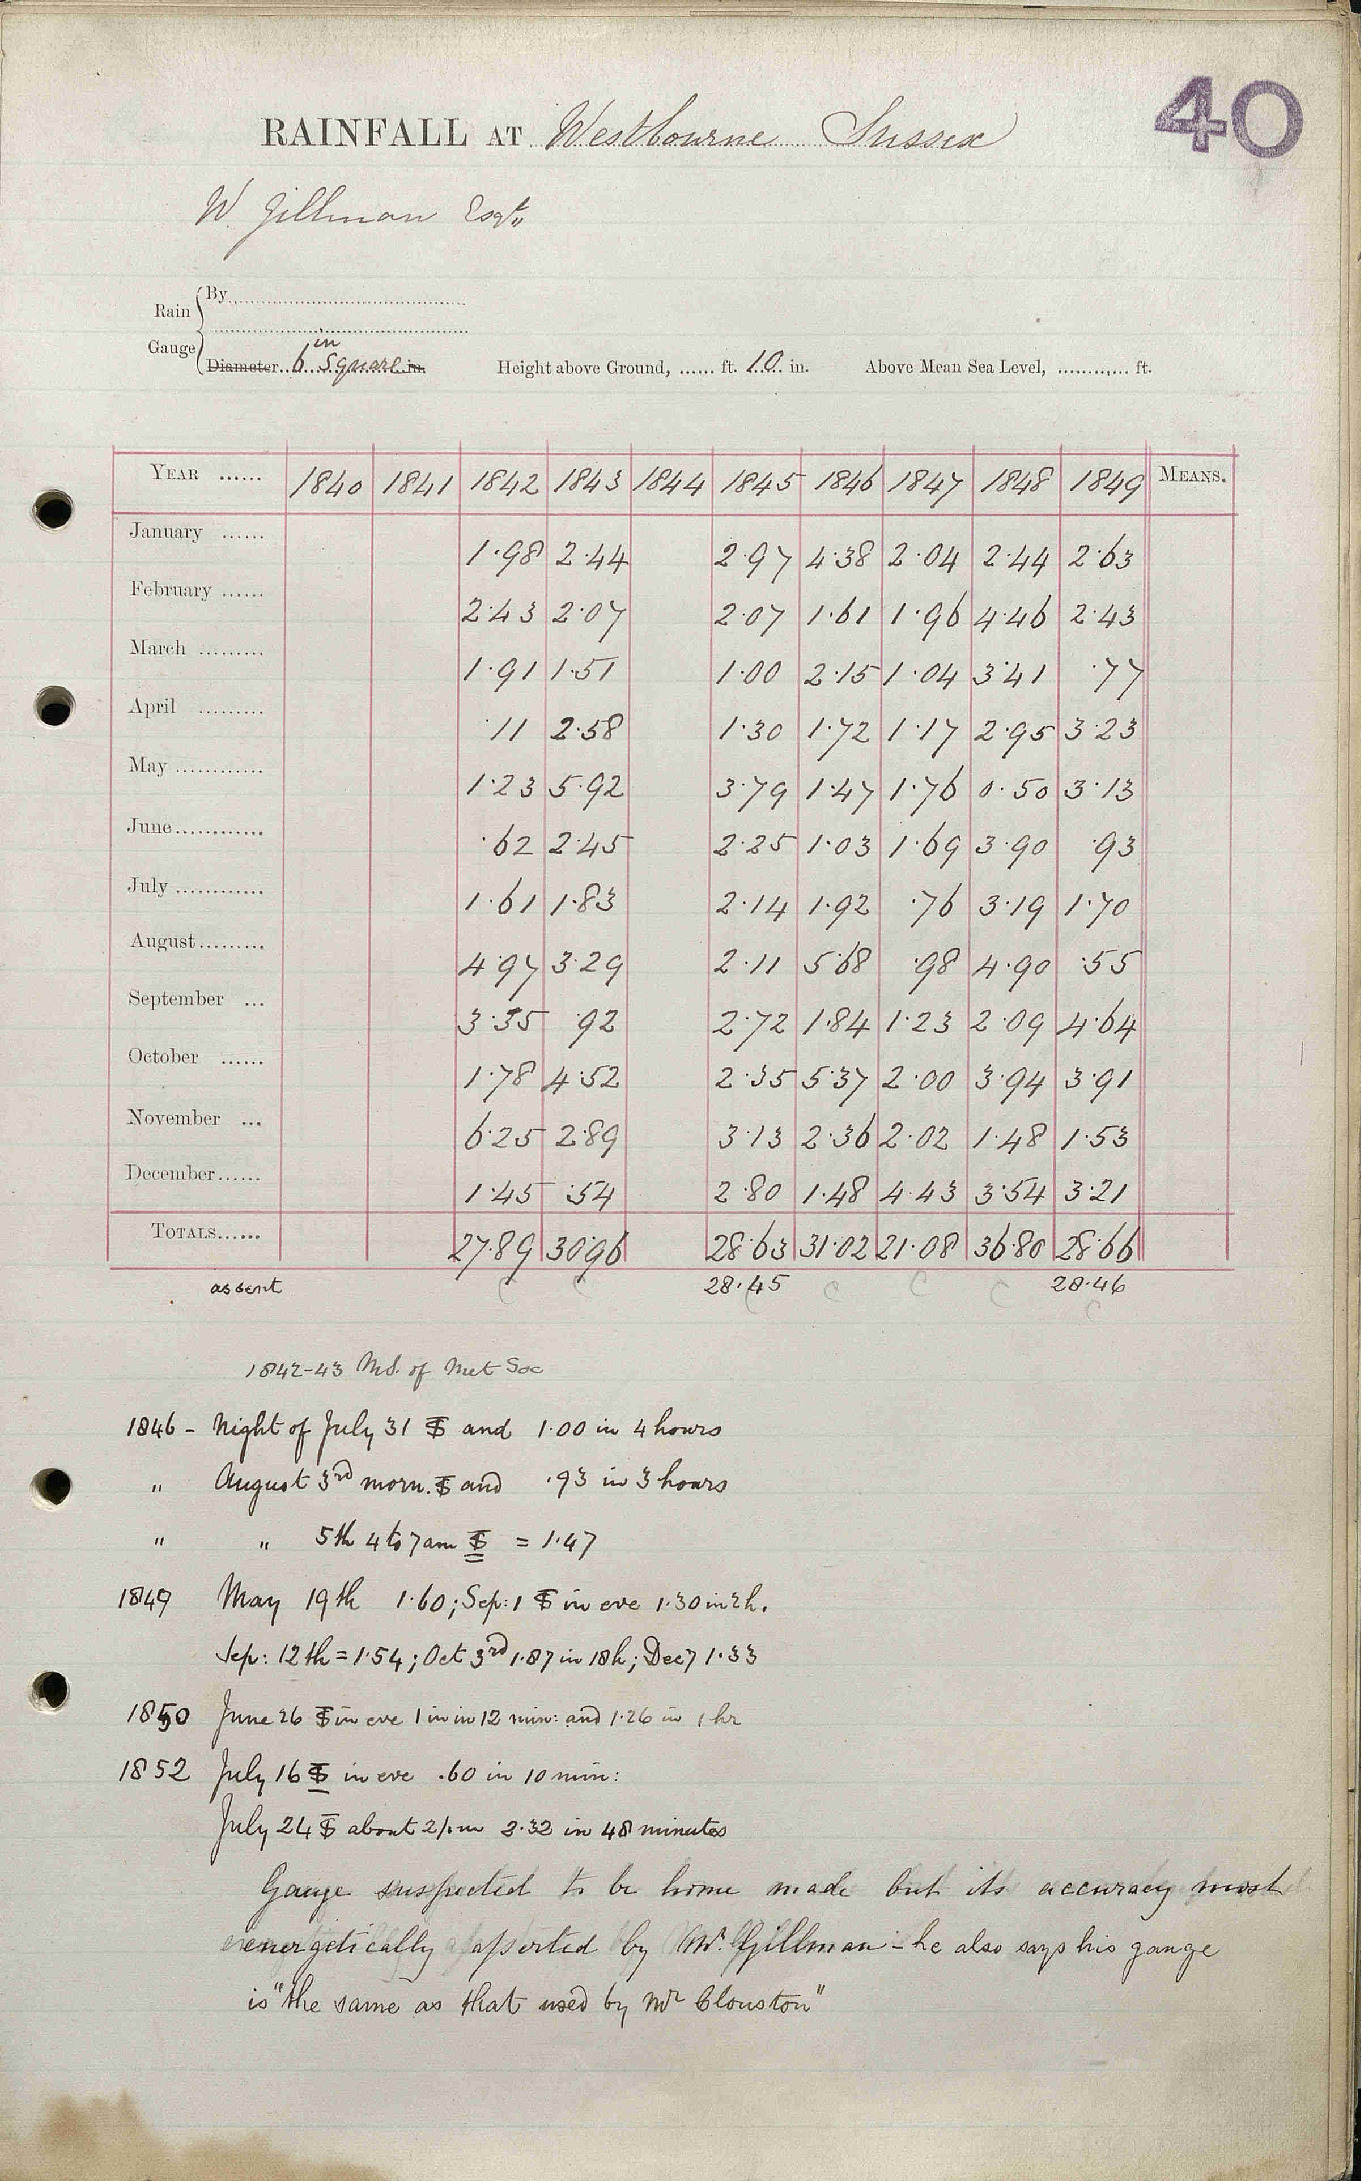 40
RAINFALL AT Westbourne Sussex
W. Gillman Esqre
Rain Gauge
By
Diameter 6 in Square in.
Height above Ground, ...... ft. 10 in.
Above Mean Sea Level, ............ ft.
YEAR ...... 1840 1841 1842 1843 1844 1845 1846 1847 1848 1849 MEANS.
January ...... 1.98 2.44 2.97 4.38 2.04 2.44 2.63
February ...... 2.43 2.07 2.07 1.61 1.96 4.46 2.43
March ......... 1.91 1.51 1.00 2.15 1.04 3.41 .77
April ......... .11 2.58 1.30 1.72 1.17 2.95 3.23
May ............ 1.23 5.92 3.79 1.47 1.76 0.50 3.13
June ............ .62 2.45 2.25 1.03 1.69 3.90 .93
July ............ 1.61 1.83 2.14 1.92 .76 3.19 1.70
August ......... 4.97 3.29 2.11 5.68 .98 4.90 .55
September ... 3.35 .92 2.72 1.84 1.23 2.09 4.64
October ...... 1.78 4.52 2.35 5.37 2.00 3.94 3.91
November ... 6.25 2.89 3.13 2.36 2.02 1.48 1.53
December ...... 1.45 .54 2.80 1.48 4.43 3.54 3.21
TOTALS ...... 27.89 30.96 28.63 31.02 21.08 36.80 28.66
as sent 28.45 28.46
1842-43 MS. of Met Soc
1846 - Night of July 31 and 1.00 in 4 hours
" August 3rd morn. and .93 in 3 hours
" " 5th 4 to 7 am = 1.47
1849 May 19th 1.60; Sep: 1 in eve 1.30 in 2h.
Sep: 12th = 1.54; Oct 3rd 1.87 in 18h; Dec 7 1.33
1850 June 26 in eve 1 in in 12 min: and 1.26 in 1 hr
1852 July 16 in eve .60 in 10 min:
July 24 about 2 pm 2.32 in 48 minutes
Gauge suspected to be home made but its accuracy most
energetically asserted by Mr. Gillman - he also says his gauge
is "the same as that used by Mr Clouston"